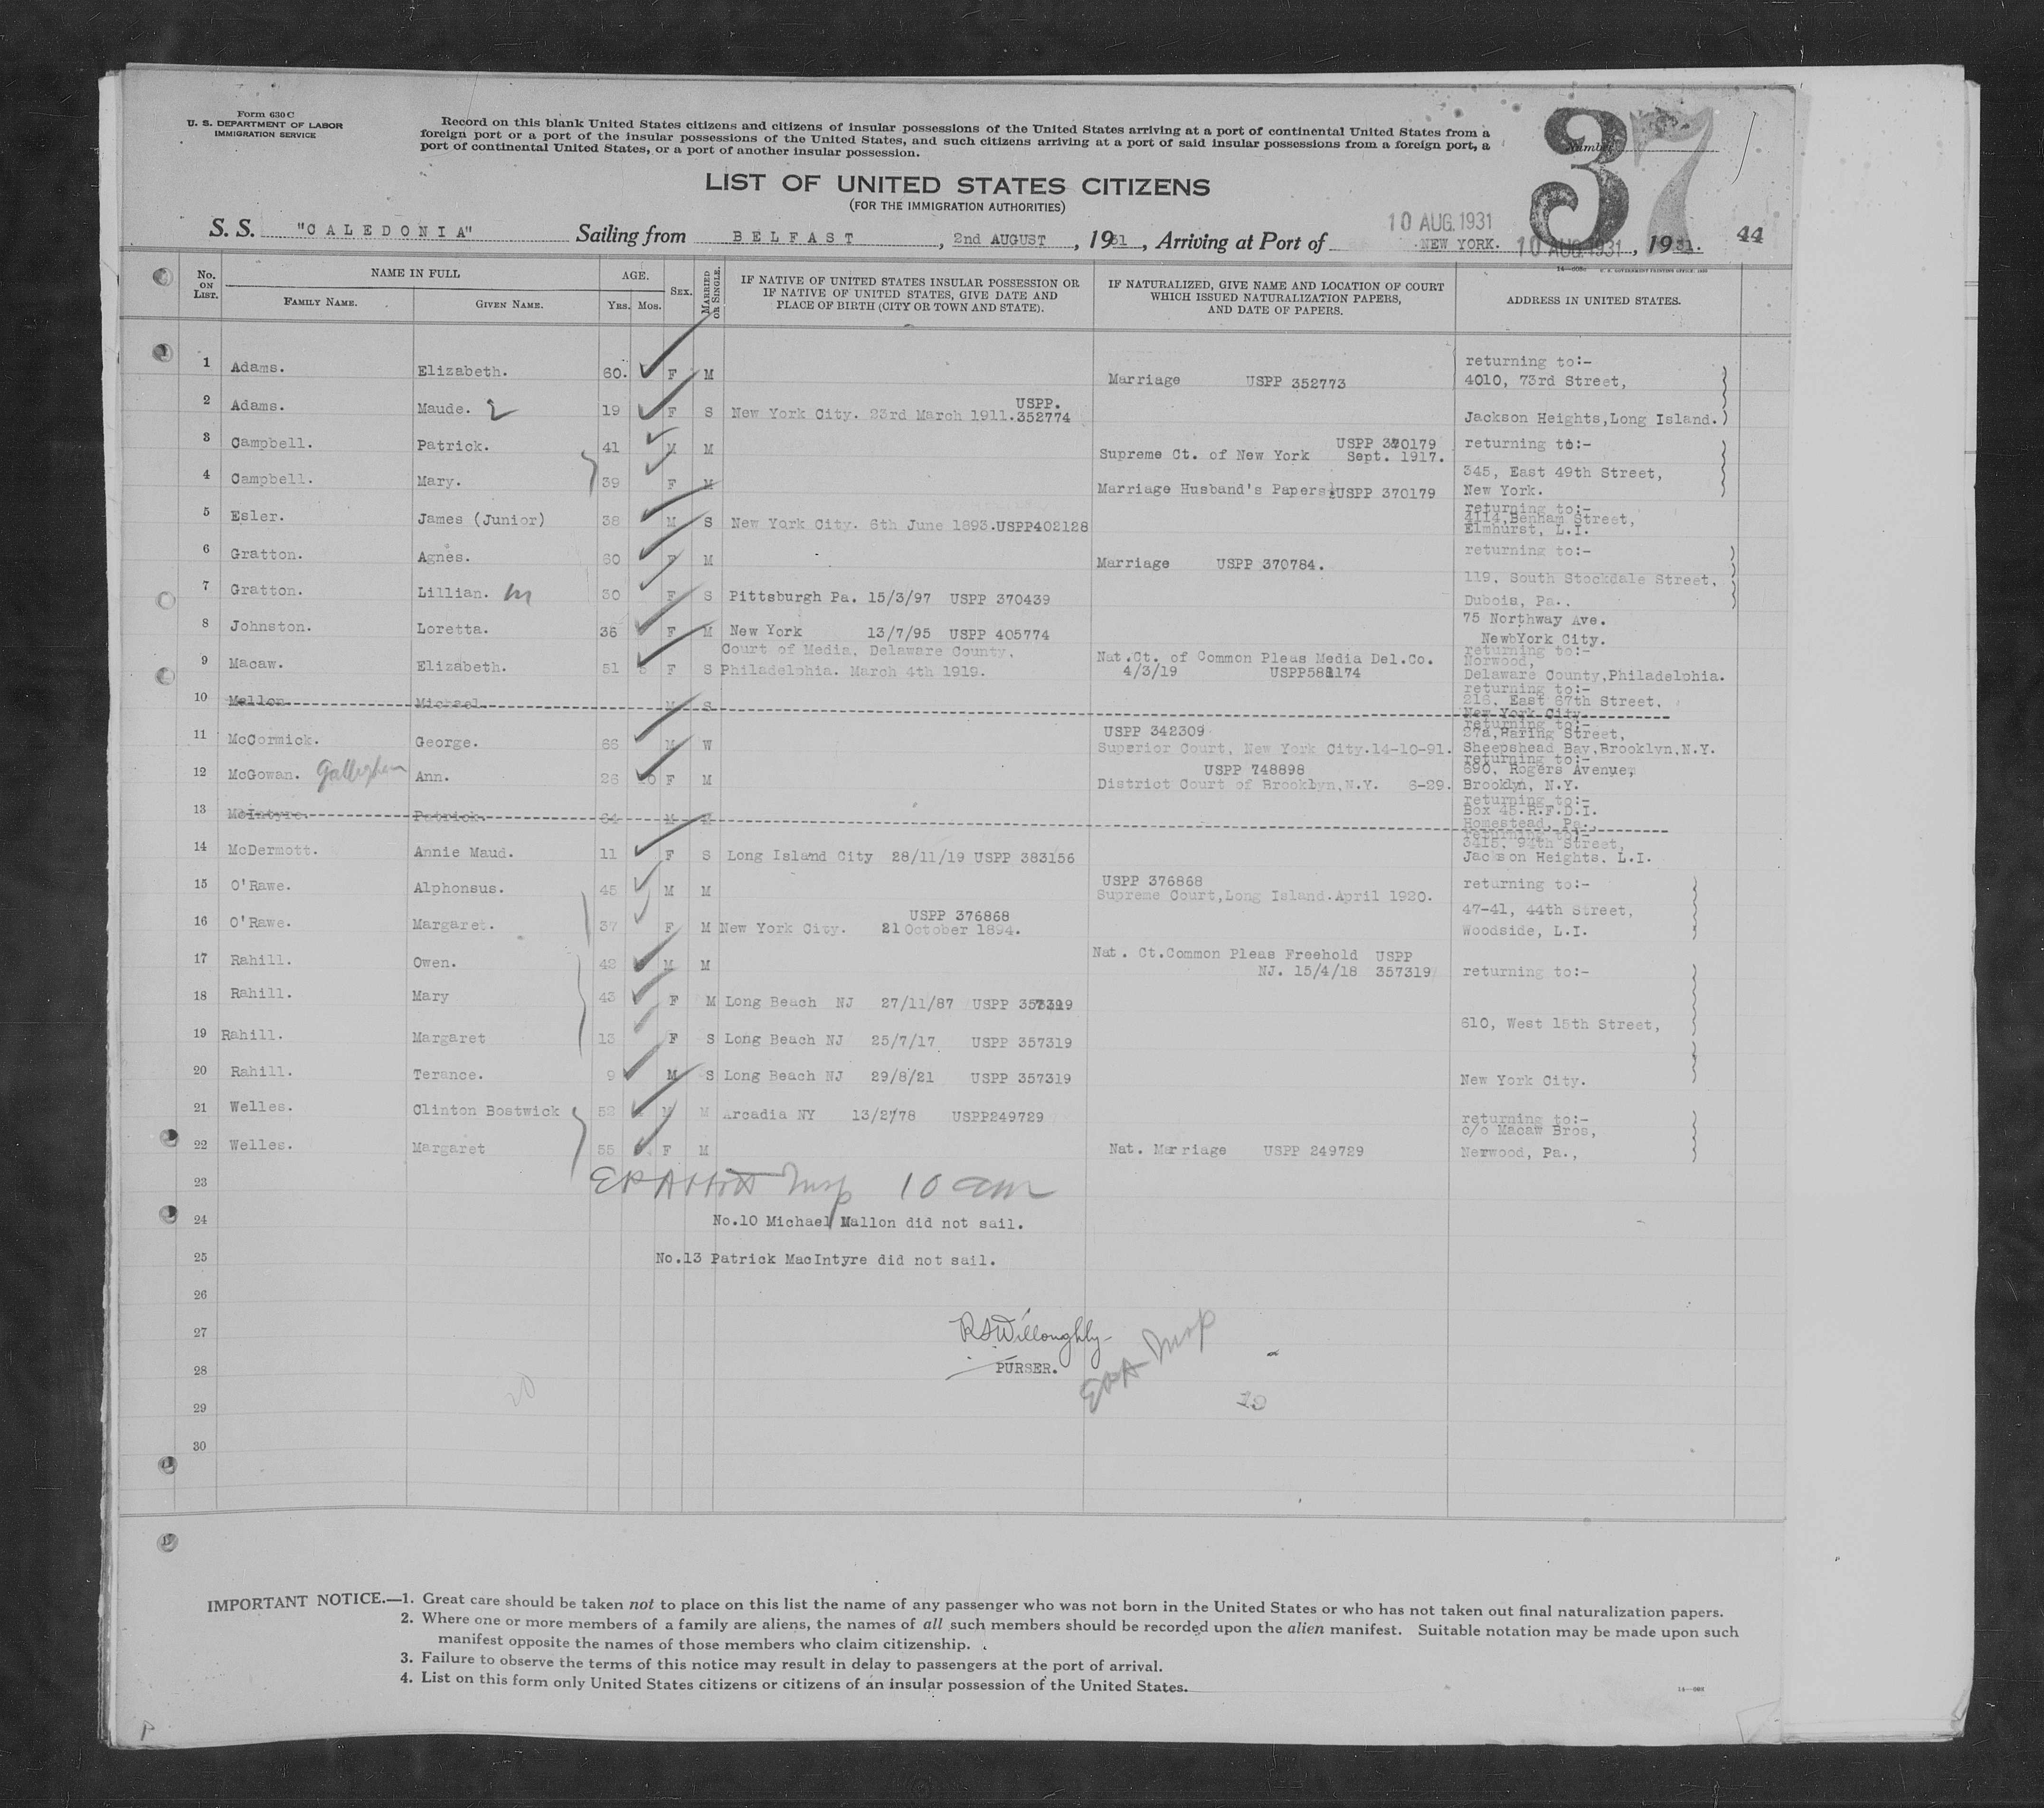 Form 630 C
U. S. DEPARTMENT OF LABOR
IMMIGRATION SERVICE
Record on this blank United States citizens and citizens of insular possessions of the United States arriving at a port of continental United States from a
foreign port or a port of the insular possessions of the United States, and such citizens arriving at a port of said insular possessions from a foreign port, a
port of continental United States, or a port of another insular possession.
Number
37
LIST OF UNITED STATES CITIZENS
(FOR THE IMMIGRATION AUTHORITIES)
10 AUG. 1931
S. S. "CALEDONIA" Sailing from BELFAST, 2nd AUGUST, 1931, Arriving at Port of NEW YORK. 10 AUG 1931, 1931. 44
No. ON LIST. NAME IN FULL FAMILY NAME. GIVEN NAME. AGE. YRS. MOS. SEX. MARRIED OR SINGLE. IF NATIVE OF UNITED STATES INSULAR POSSESSION OR IF NATIVE OF UNITED STATES, GIVE DATE AND PLACE OF BIRTH (CITY OR TOWN AND STATE). IF NATURALIZED, GIVE NAME AND LOCATION OF COURT WHICH ISSUED NATURALIZATION PAPERS, AND DATE OF PAPERS. ADDRESS IN UNITED STATES.
1 Adams. Elizabeth. 60. F M Marriage USPP 352773 returning to:- 4010, 73rd Street,
2 Adams. Maude. 19 F S New York City. 23rd March 1911. USPP. 352774 Jackson Heights,Long Island.
3 Campbell. Patrick. 41 M M Supreme Ct. of New York Sept. 1917. USPP 370179 returning to:-
4 Campbell. Mary. 39 F M Marriage Husband's Papers USPP 370179 345, East 49th Street, New York.
5 Esler. James (Junior) 38 M S New York City. 6th June 1893. USPP402128 returning to:- 4114,Benham Street, Elmhurst, L.I.
6 Gratton. Agnes. 60 F M Marriage USPP 370784. returning to:-
7 Gratton. Lillian. 30 F S Pittsburgh Pa. 15/3/97 USPP 370439 119, South Stockdale Street, Dubois, Pa..
8 Johnston. Loretta. 36 F M New York 13/7/95 USPP 405774 75 Northway Ave. NewbYork City.
9 Macaw. Elizabeth. 51 F S Court of Media, Delaware County, Philadelphia. March 4th 1919. Nat.Ct. of Common Pleas Media Del.Co. 4/3/19 returning to:- Norwood, Delaware County,Philadelphia.
10 Mallon Michael M S returning to:- 216, East 67th Street, New York City.
11 McCormick. George. 66 M W USPP 342309 Superior Court, New York City.14-10-91. returning to:- 27a,Haring Street, Sheepshead Bay,Brooklyn,N.Y.
12 McGowan. Ann. 26 10 F M USPP 748898 District Court of Brooklyn,N.Y. 6-29. returning to:- 690, Rogers Avenue, Brooklyn, N.Y.
13 McIntyre. Patrick. 64 M M returning to:- Box 45.R.F.D.I. Homestead, Pa.,
14 McDermott. Annie Maud. 11 F S Long Island City 28/11/19 USPP 383156 returning to:- 3415. 94th Street, Jackson Heights. L.I.
15 O'Rawe. Alphonsus. 45 M M USPP 376868 Supreme Court,Long Island.April 1920. returning to:-
16 O'Rawe. Margaret. 37 F M New York City. 21 October 1894. USPP 376868 47-41, 44th Street, Woodside, L.I.
17 Rahill. Owen. 48 M M Nat. Ct.Common Pleas Freehold NJ. 15/4/18 USPP 357319 returning to:-
18 Rahill. Mary 43 F M Long Beach NJ 27/11/87 USPP 357319
19 Rahill. Margaret 13 F S Long Beach NJ 25/7/17 USPP 357319 610, West 15th Street,
20 Rahill. Terance. 9 M S Long Beach NJ 29/8/21 USPP 357319 New York City.
21 Welles. Clinton Bostwick 53 M M Arcadia NY 13/2/78 USPP249729 returning to:- c/o Macaw Bros,
22 Welles. Margaret 55 F M Nat. Marriage USPP 249729 Norwood, Pa.,
23 Insp 10 am
24 No.10 Michael Mallon did not sail.
25 No.13 Patrick MacIntyre did not sail.
26
27 RSWilloughby
28 PURSER.
Insp
20
29
30
IMPORTANT NOTICE.—1. Great care should be taken not to place on this list the name of any passenger who was not born in the United States or who has not taken out final naturalization papers.
2. Where one or more members of a family are aliens, the names of all such members should be recorded upon the alien manifest. Suitable notation may be made upon such
manifest opposite the names of those members who claim citizenship.
3. Failure to observe the terms of this notice may result in delay to passengers at the port of arrival.
4. List on this form only United States citizens or citizens of an insular possession of the United States.